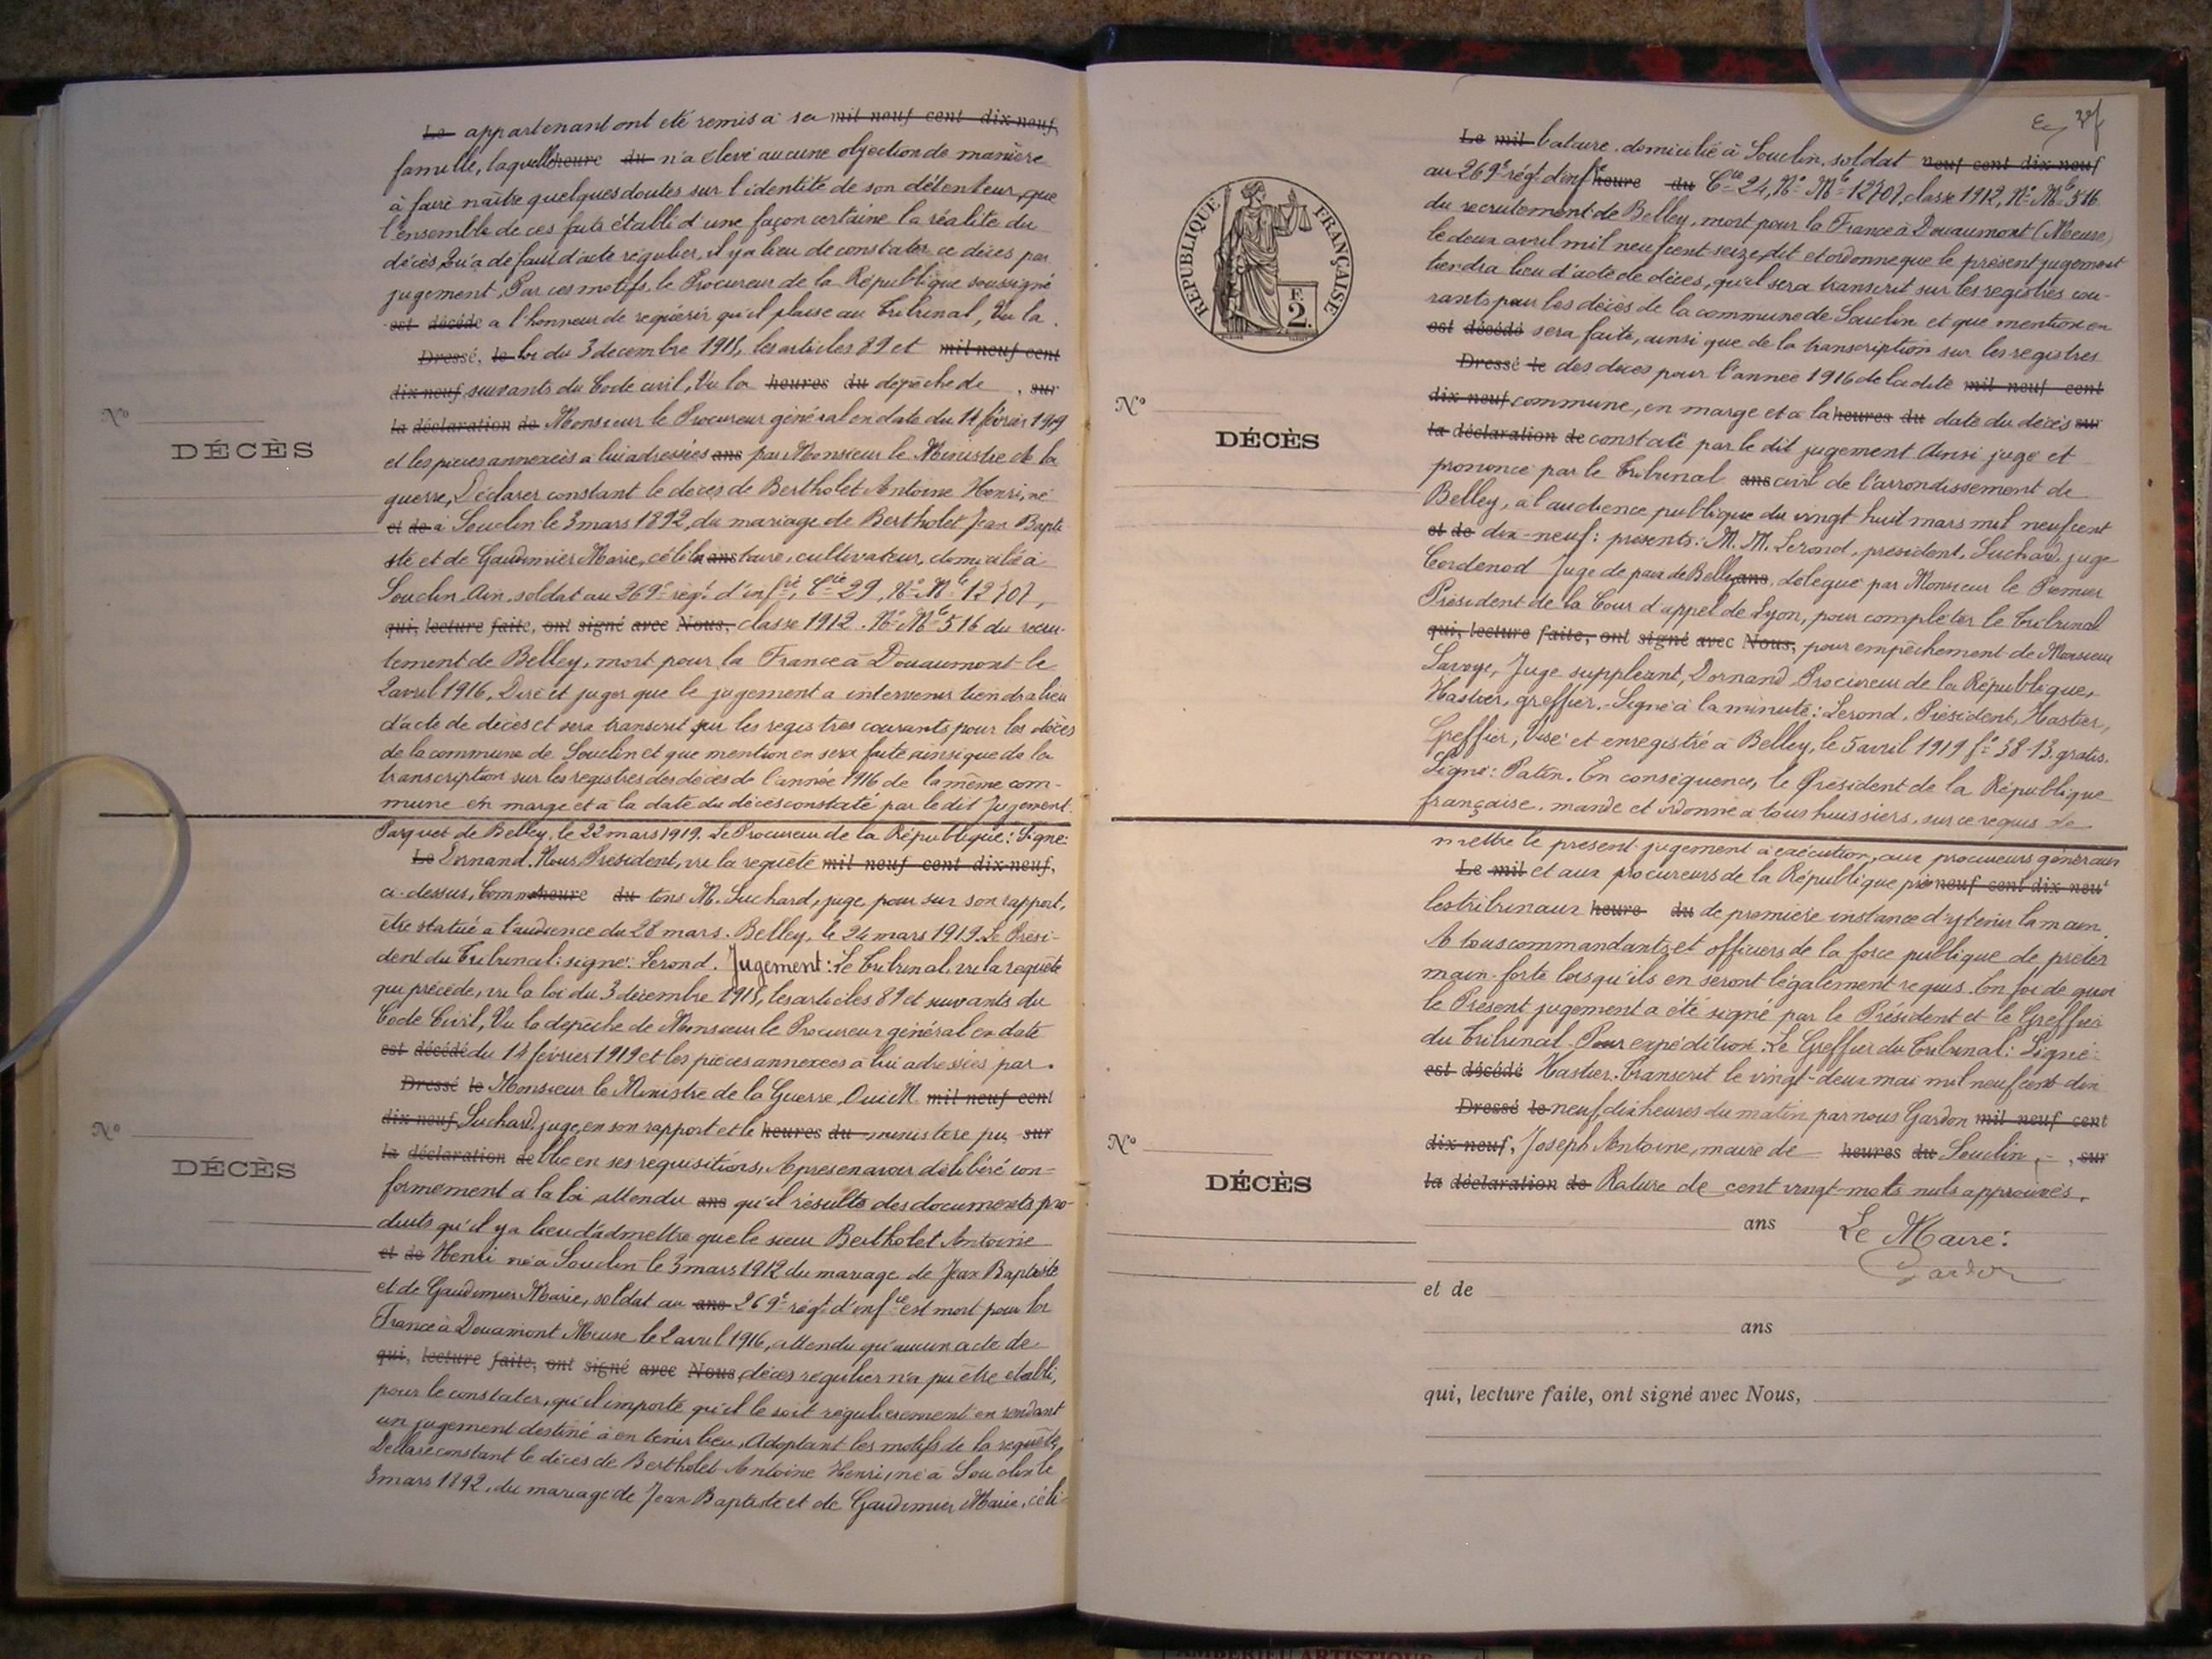 Le appartenant ont été remis à sa mil neuf cent dix-neuf,
famille, laquelle heure du n'a élevé aucune objection de manière
à faire naître quelques doutes sur l'identité de son détenteur, que
l'ensemble de ces faits établi d'une façon certaine la réalité du
décès, Qu'à défaut d'acte régulier, il y a lieu de constater ce décès par
jugement, Par ces motifs, le Procureur de la République soussigné
est décédé a l'honneur de requérir qu'il plaise au Tribunal, Vu la
Dressé, le loi du 3 décembre 1915, les articles 89 et mil neuf cent
dix-neuf, suivants du Code civil, Vu la heures du dépêche de , sur
la déclaration de Monsieur le Procureur général en date du 14 février 1919
et les pièces annexées à lui adressées ans par Monsieur le Ministre de la
guerre, Déclarer constant le décès de Bertholet Antoine Henri, né
et de à Souclin le 3 mars 1892, du mariage de Bertholet Jean Bapti
ste et de Gaudimier Marie, céliba ans taire, cultivateur, domicilié à
Souclin Ain, soldat au 269e régt d'infrie, Cie 29, No Mle 12707,
qui, lecture faite, ont signé avec Nous, classe 1912. No Mle 516 du recru-
tement de Belley, mort pour la France à Douaumont le
2 avril 1916, Dire et juger que le jugement à intervenir tiendra lieu
d'acte de décès et sera transcrit sur les registres courants pour les décès
de la commune de Souclin et que mention en sera faite ainsi que de la
transcription sur les registres des décès de l'année 1916 de la même com-
mune en marge et à la date du décès constaté par le dit Jugement.
N°
DÉCÈS
Parquet de Belley, le 22 mars 1919. Le Procureur de la République: Signé:
Le Dornand. Nous Président, vu la requête mil neuf cent dix-neuf,
ci-dessus, Comm heure du tons M. Suchard, juge, pour sur son rapport,
être statué à l'audience du 28 mars. Belley, le 24 mars 1919. Le Prési-
dent du Tribunal: signé: Lerond. Jugement: Le Tribunal, vu la requête
qui précède, vu la loi du 3 décembre 1915, les articles 89 et suivants du
Code Civil, Vu la dépêche de Monsieur le Procureur général en date
est décédé du 14 février 1919 et les pièces annexées à lui adressées par
Dressé le Monsieur le Ministre de la Guerre, Oui M. mil neuf cent
dix-neuf, Suchard, juge, en son rapport et le heures du ministère pu sur
la déclaration de blic en ses réquisitions, Après en avoir délibéré con-
formément à la loi, attendu ans qu'il résulte des documents pro-
duits qu'il y a lieu d'admettre que le sieur Bertholet Antoine
et de Henri né à Souclin le 3 mars 1912 du mariage de Jean Baptiste
et de Gaudimier Marie, soldat au ans 269e régt d'infie est mort pour la
France à Douamont Meuse le 2 avril 1916, attendu qu'aucun acte de
qui, lecture faite, ont signé avec Nous, décès régulier n'a pu être établi,
pour le constater, qu'il importe qu'il le soit régulièrement en rendant
un jugement destiné à en tenir lieu, Adoptant les motifs de la requête,
Déclare constant le décès de Bertholet Antoine Henri, né à Souclin le
3 mars 1892, du mariage de Jean Baptiste et de Gaudimier Marie, céli-
N°
DÉCÈS
Le mil bataire, domicilié à Souclin, soldat neuf cent dix-neuf
au 269e régt d'infie heure du Cie 24, No Mle 12707, classe 1912, No Mle 516
du recrutement de Belley, mort pour la France à Douaumont (Meuse)
le deux avril mil neuf cent seize, dit et ordonne que le présent jugement
tiendra lieu d'acte de décès, qu'il sera transcrit sur les registres cou-
rants pour les décès de la commune de Souclin et que mention en
est décédé sera faite, ainsi que de la transcription sur les registres
Dressé le des décès pour l'année 1916 de ladite mil neuf cent
dix-neuf, commune, en marge et à la heures du date du décès sur
la déclaration de constaté par le dit jugement Ainsi jugé et
prononcé par le Tribunal ans civil de l'arrondissement de
Belley, à l'audience publique du vingt huit mars mil neuf cent
et de dix-neuf: présents: M. M. Lerond, président, Suchard, juge
Cordenod Juge de paix de Belley ans, délégué par Monsieur le Premier
Président de la Cour d'appel de Lyon, pour compléter le Tribunal
qui, lecture faite, ont signé avec Nous, pour empêchement de Monsieur
Savoye, Juge suppléant, Dornand, Procureur de la République,
Hastier, greffier. Signé à la minute: Lerond, Président, Hastier,
Greffier, Visé et enregistré à Belley, le 5 avril 1919 fo 38-13. gratis.
Signé: Patin. En conséquence, le Président de la République
française, mande et ordonne à tous huissiers, sur ce requis de
RÉPUBLIQUE FRANÇAISE
F. 2.
N°
DÉCÈS
mettre le présent jugement à exécution, aux procureurs généraux
Le mil et aux procureurs de la République près neuf cent dix-neuf
les tribunaux heure du de première instance d'y tenir la main.
A tous commandants et officiers de la force publique de prêter
main-forte lorsqu'ils en seront légalement requis. En foi de quoi
le Présent jugement a été signé par le Président et le Greffier
du Tribunal. Pour expédition: Le Greffier du Tribunal: Signé:
est décédé Hastier. Transcrit le vingt-deux mai mil neuf cent dix
Dressé le neuf, dix heures du matin, par nous Gardon mil neuf cent
dix-neuf, Joseph Antoine, maire de heures du Souclin, , sur
la déclaration de Rature de cent vingt mots nuls approuvés.
ans Le Maire:
Gardon
et de
ans
qui, lecture faite, ont signé avec Nous,
N°
DÉCÈS